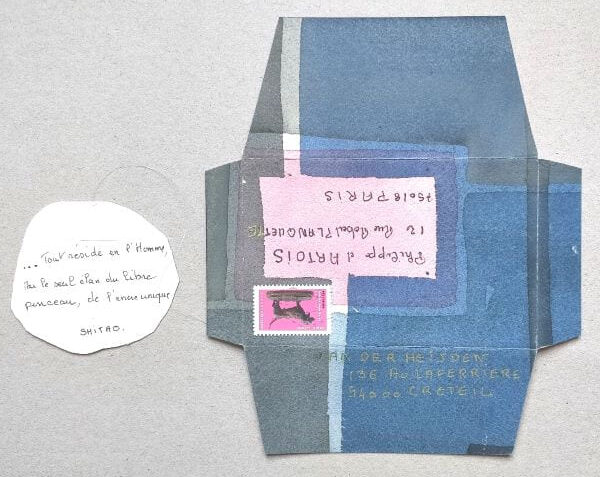 ... Tout réside en l'Homme,
Par le seul élan du libre
pinceau, de l'encre unique
SHITAO.
Philippe d'ARTOIS
12 Rue Robert PLANQUETTE
75018 PARIS
VAN DER HEIJDEN
13E Av LAFERRIERE
94000 CRETEIL